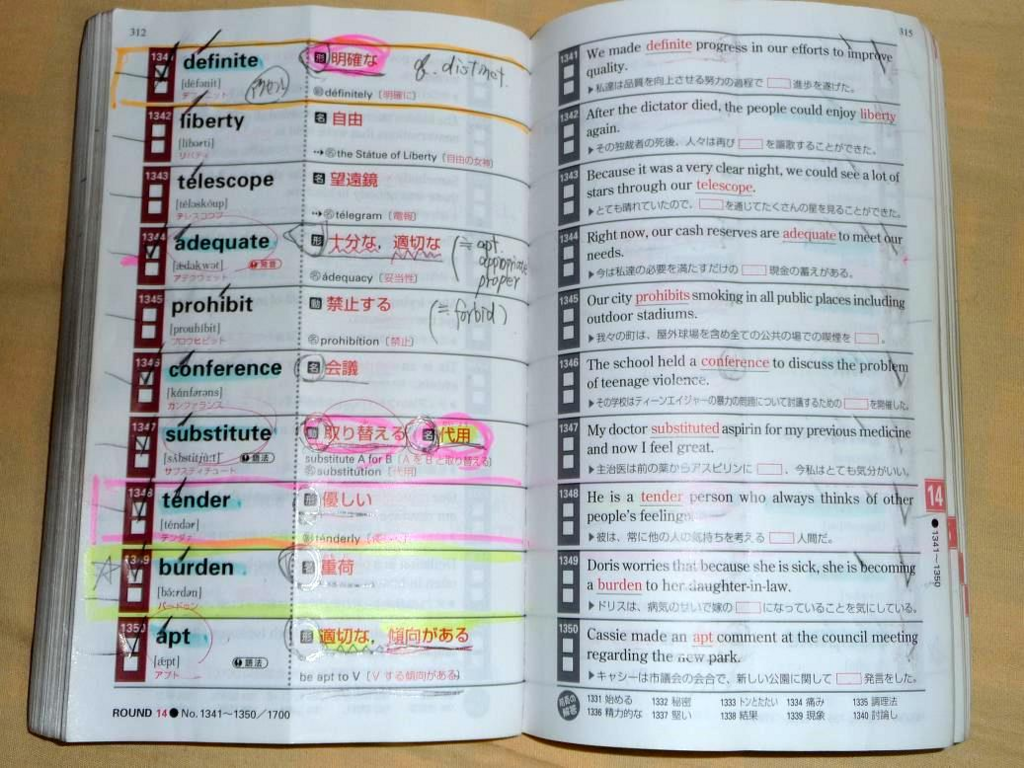 312
1341
definite
[défənit]
デフィニット
アクセント
形 明確な
cf. distinct.
副 définitely〔明確に〕
1342
liberty
[líbərti]
リバティ
名 自由
the Statue of Liberty〔自由の女神〕
1343
telescope
[téləskòup]
テレスコウプ
名 望遠鏡
télegram〔電報〕
1344
adequate
[ǽdəkwət]
アデクウェット
発音
形 十分な, 適切な
(≒ apt.
appropriate
proper
名 ádequacy〔妥当性〕
1345
prohibit
[prouhíbit]
プロウヒビット
動 禁止する
(≒ forbid)
名 prohibítion〔禁止〕
1346
conference
[kánfərəns]
カンファランス
名 会議
1347
substitute
[sʌ́bstitjùːt]
サブスティチュート
語法
動 取り替える 名 代用
substitute A for B〔AをBと取り替える〕
名 substitútion〔代用〕
1348
tender
[téndər]
テンダァ
形 優しい
副 ténderly
1349
burden
[bə́ːrdən]
バードゥン
名 重荷
1350
apt
[ǽpt]
アプト
語法
形 適切な, 傾向がある
be apt to V〔Vする傾向がある〕
ROUND 14 ● No. 1341～1350／1700
315
1341
We made definite progress in our efforts to improve
quality.
▶私達は品質を向上させる努力の過程で 進歩を遂げた。
1342
After the dictator died, the people could enjoy liberty
again.
▶その独裁者の死後、人々は再び を謳歌することができた。
1343
Because it was a very clear night, we could see a lot of
stars through our telescope.
▶とても晴れていたので、 を通じてたくさんの星を見ることができた。
1344
Right now, our cash reserves are adequate to meet our
needs.
▶今は私達の必要を満たすだけの 現金の蓄えがある。
1345
Our city prohibits smoking in all public places including
outdoor stadiums.
▶我々の町は、屋外球場を含め全ての公共の場での喫煙を 。
1346
The school held a conference to discuss the problem
of teenage violence.
▶その学校はティーンエイジャーの暴力の問題について討議するための を開催した。
1347
My doctor substituted aspirin for my previous medicine
and now I feel great.
▶主治医は前の薬からアスピリンに 、今私はとても気分がいい。
1348
He is a tender person who always thinks of other
people's feelings.
▶彼は、常に他の人の気持ちを考える 人間だ。
1349
Doris worries that because she is sick, she is becoming
a burden to her daughter-in-law.
▶ドリスは、病気のせいで嫁の になっていることを気にしている。
1350
Cassie made an apt comment at the council meeting
regarding the new park.
▶キャシーは市議会の会合で、新しい公園に関して 発言をした。
14
●1341～1350
前頁の解答
1331 始める 1332 秘密 1333 トンとたたい 1334 痛み 1335 調理法
1336 精力的な 1337 堅い 1338 結果 1339 現象 1340 討論し